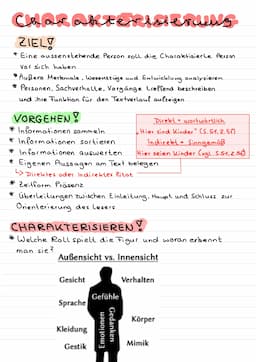 Charakterisierung
ZIEL!
* Eine aussenstehende Person soll die Charaktisierte Person vor sich haben
* Äußere Merkmale, Wesenszüge und Entwicklung analysieren
* Personen, Sachverhalte, Vorgänge treffend beschreiben
und ihre Funktion für den Textverlauf aufzeigen
VORGEHEN!
* Informationen sammeln
* Informationen sortieren
* Informationen auswerten
* Eigenen Aussagen am Text belegen
↳ Direktes oder Indirektes Zitat
Direkt = wortwörtlich
"Hier sind Kinder" (S.5f, Z.5f)
Indirekt = Sinngemäß
Hier seien Kinder (vgl. S.5f, Z.5f)
* Zeitform Präsenz
* Überleitungen zwischen Einleitung, Haupt und Schluss zur
Orientierung des Lesers
CHARAKTERISIEREN!
* Welche Roll spielt die Figur und woran erkennt
man sie?
Außensicht vs. Innensicht
Gesicht
Verhalten
Gefühle
Sprache
Emotionen
Gedanken
Körper
Kleidung
Gestik
Mimik